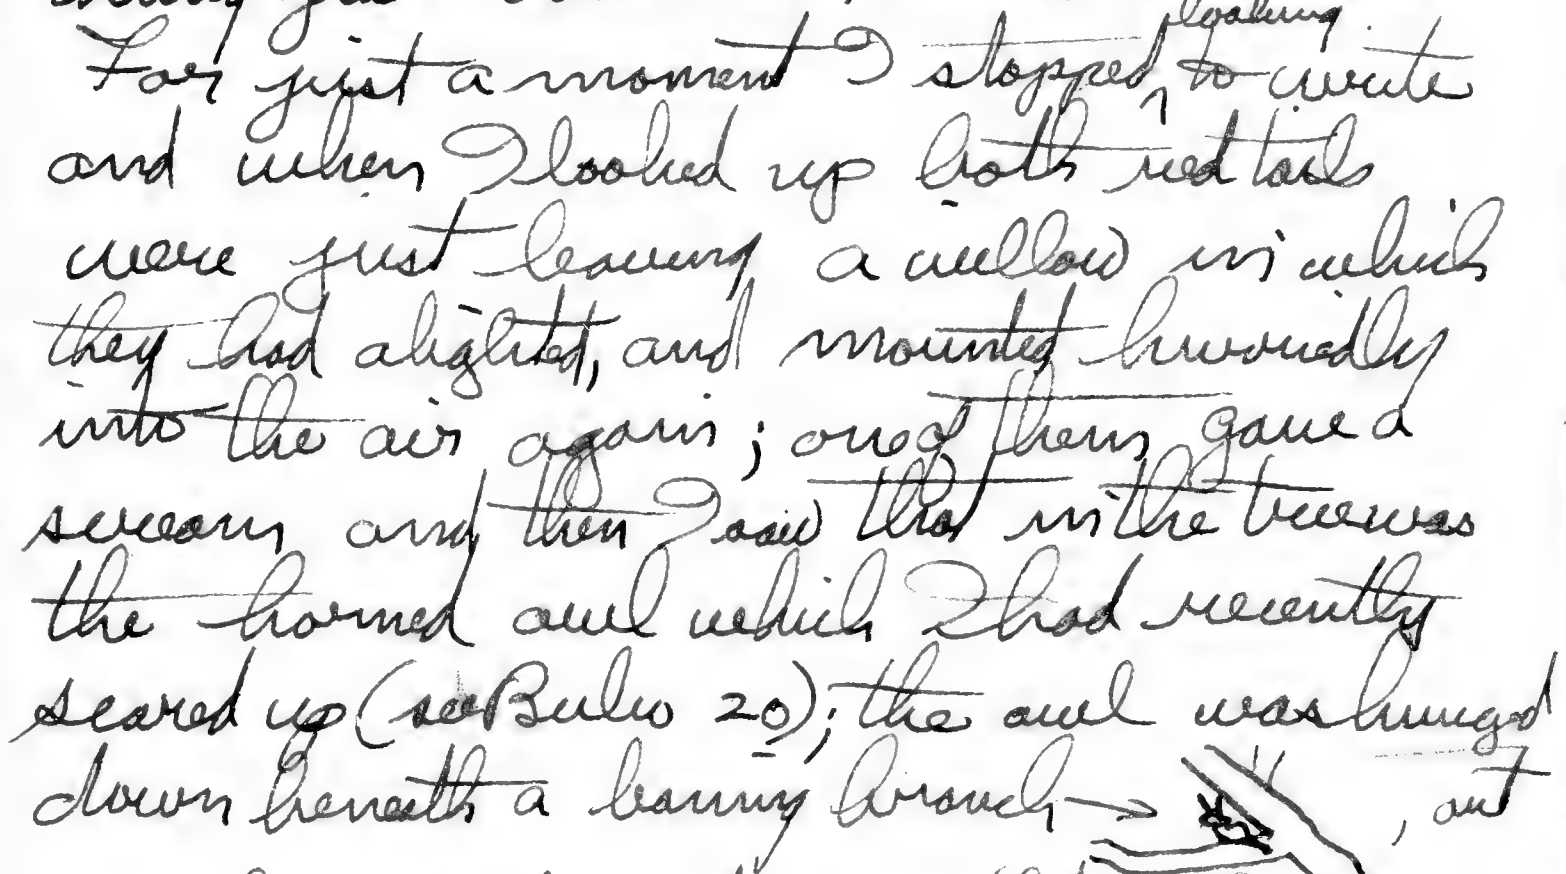 looking
For just a moment I stopped ^ to write
and when I looked up both redtails
were just leaving a willow in which
they had alighted, and mounted hurriedly
into the air again; one of them gave a
scream and then I saw that in the tree was
the horned owl which I had recently
scared up (see Bubo 20); the owl was hunged
down beneath a leaning branch → , out